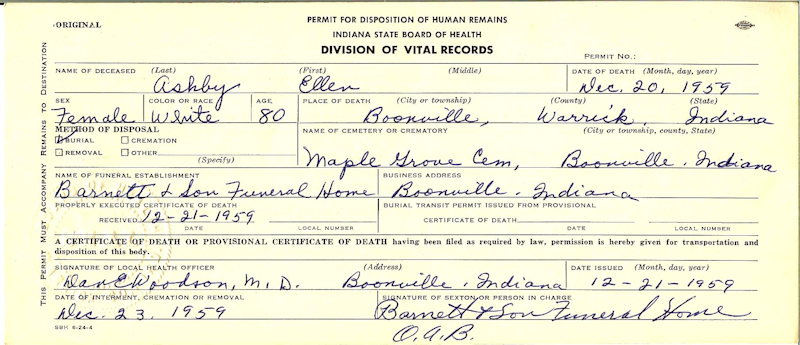 ORIGINAL
PERMIT FOR DISPOSITION OF HUMAN REMAINS
INDIANA STATE BOARD OF HEALTH
DIVISION OF VITAL RECORDS
PERMIT NO.:
THIS PERMIT MUST ACCOMPANY REMAINS TO DESTINATION
NAME OF DECEASED (Last) (First) (Middle) DATE OF DEATH (Month, day, year)
Ashby Ellen Dec. 20, 1959
SEX COLOR OR RACE AGE PLACE OF DEATH (City or township) (County) (State)
Female White 80 Boonville, Warrick, Indiana
METHOD OF DISPOSAL NAME OF CEMETERY OR CREMATORY (City or township, county, State)
BURIAL CREMATION
REMOVAL OTHER
(Specify)
Maple Grove Cem, Boonville. Indiana
NAME OF FUNERAL ESTABLISHMENT BUSINESS ADDRESS
Barnett & Son Funeral Home Boonville. Indiana
PROPERLY EXECUTED CERTIFICATE OF DEATH BURIAL TRANSIT PERMIT ISSUED FROM PROVISIONAL
RECEIVED 12-21-1959 CERTIFICATE OF DEATH
DATE LOCAL NUMBER DATE LOCAL NUMBER
A CERTIFICATE OF DEATH OR PROVISIONAL CERTIFICATE OF DEATH having been filed as required by law, permission is hereby given for transportation and
disposition of this body.
SIGNATURE OF LOCAL HEALTH OFFICER (Address) DATE ISSUED (Month, day, year)
Dan E Woodson, M.D. Boonville. Indiana 12-21-1959
DATE OF INTERMENT, CREMATION OR REMOVAL SIGNATURE OF SEXTON OR PERSON IN CHARGE
Dec. 23. 1959 Barnett & Son Funeral Home
O.A.B.
SBH 6-24-4